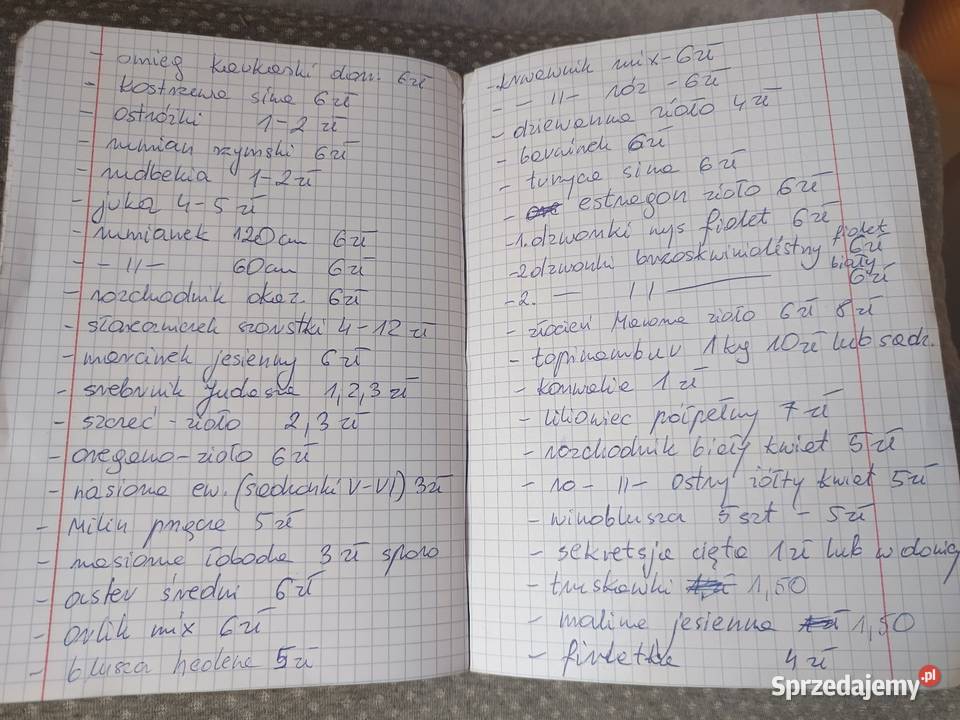 - omieg kaukaski don. 6 zł
- kostrzewa sina 6 zł
- ostróżki 1-2 zł
- rumian rzymski 6 zł
- rudbekia 1-2 zł
- juka 4-5 zł
- rumianek 120cm 6 zł
- -"- 60cm 6 zł
- rozchodnik okaz. 6 zł
- słoneczniczek szorstki 4-12 zł
- marcinek jesienny 6 zł
- srebrnik Judasza 1,2,3 zł
- szczeć - zioło 2,3 zł
- oregano-zioło 6 zł
- nasiona ew. (sadzonki V-VI) 3 zł
- Milin pnący 5 zł
- nasiona łoboda 3 zł sporo
- aster średni 6 zł
- orlik mix 6 zł
- bluszcz hedera 5 zł
- krwawnik mix - 6 zł
- -"- róż - 6 zł
- dziewanna zioło 4 zł
- barwinek 6 zł
- turzyca sina 6 zł
- estragon zioło 6 zł
- 1. dzwonki nys fiolet 6 zł
- 2 dzwonki brzoskwiniolistny fiolet 6 zł
- 2. -"- biały 6 zł
- złocień Maruna zioło 6 zł 8 zł
- topinambur 1kg 10 zł lub sadz.
- konwalie 1 zł
- liliowiec półpełny 7 zł
- rozchodnik biały kwiat 5 zł
- ro-"- ostry żółty kwiat 5 zł
- winobluszcz 5 szt - 5 zł
- cięta 1 zł lub w donicy
- truskawki 1,50
- malina jesienna 1,50
- firletka 4 zł
Sprzedajemy.pl